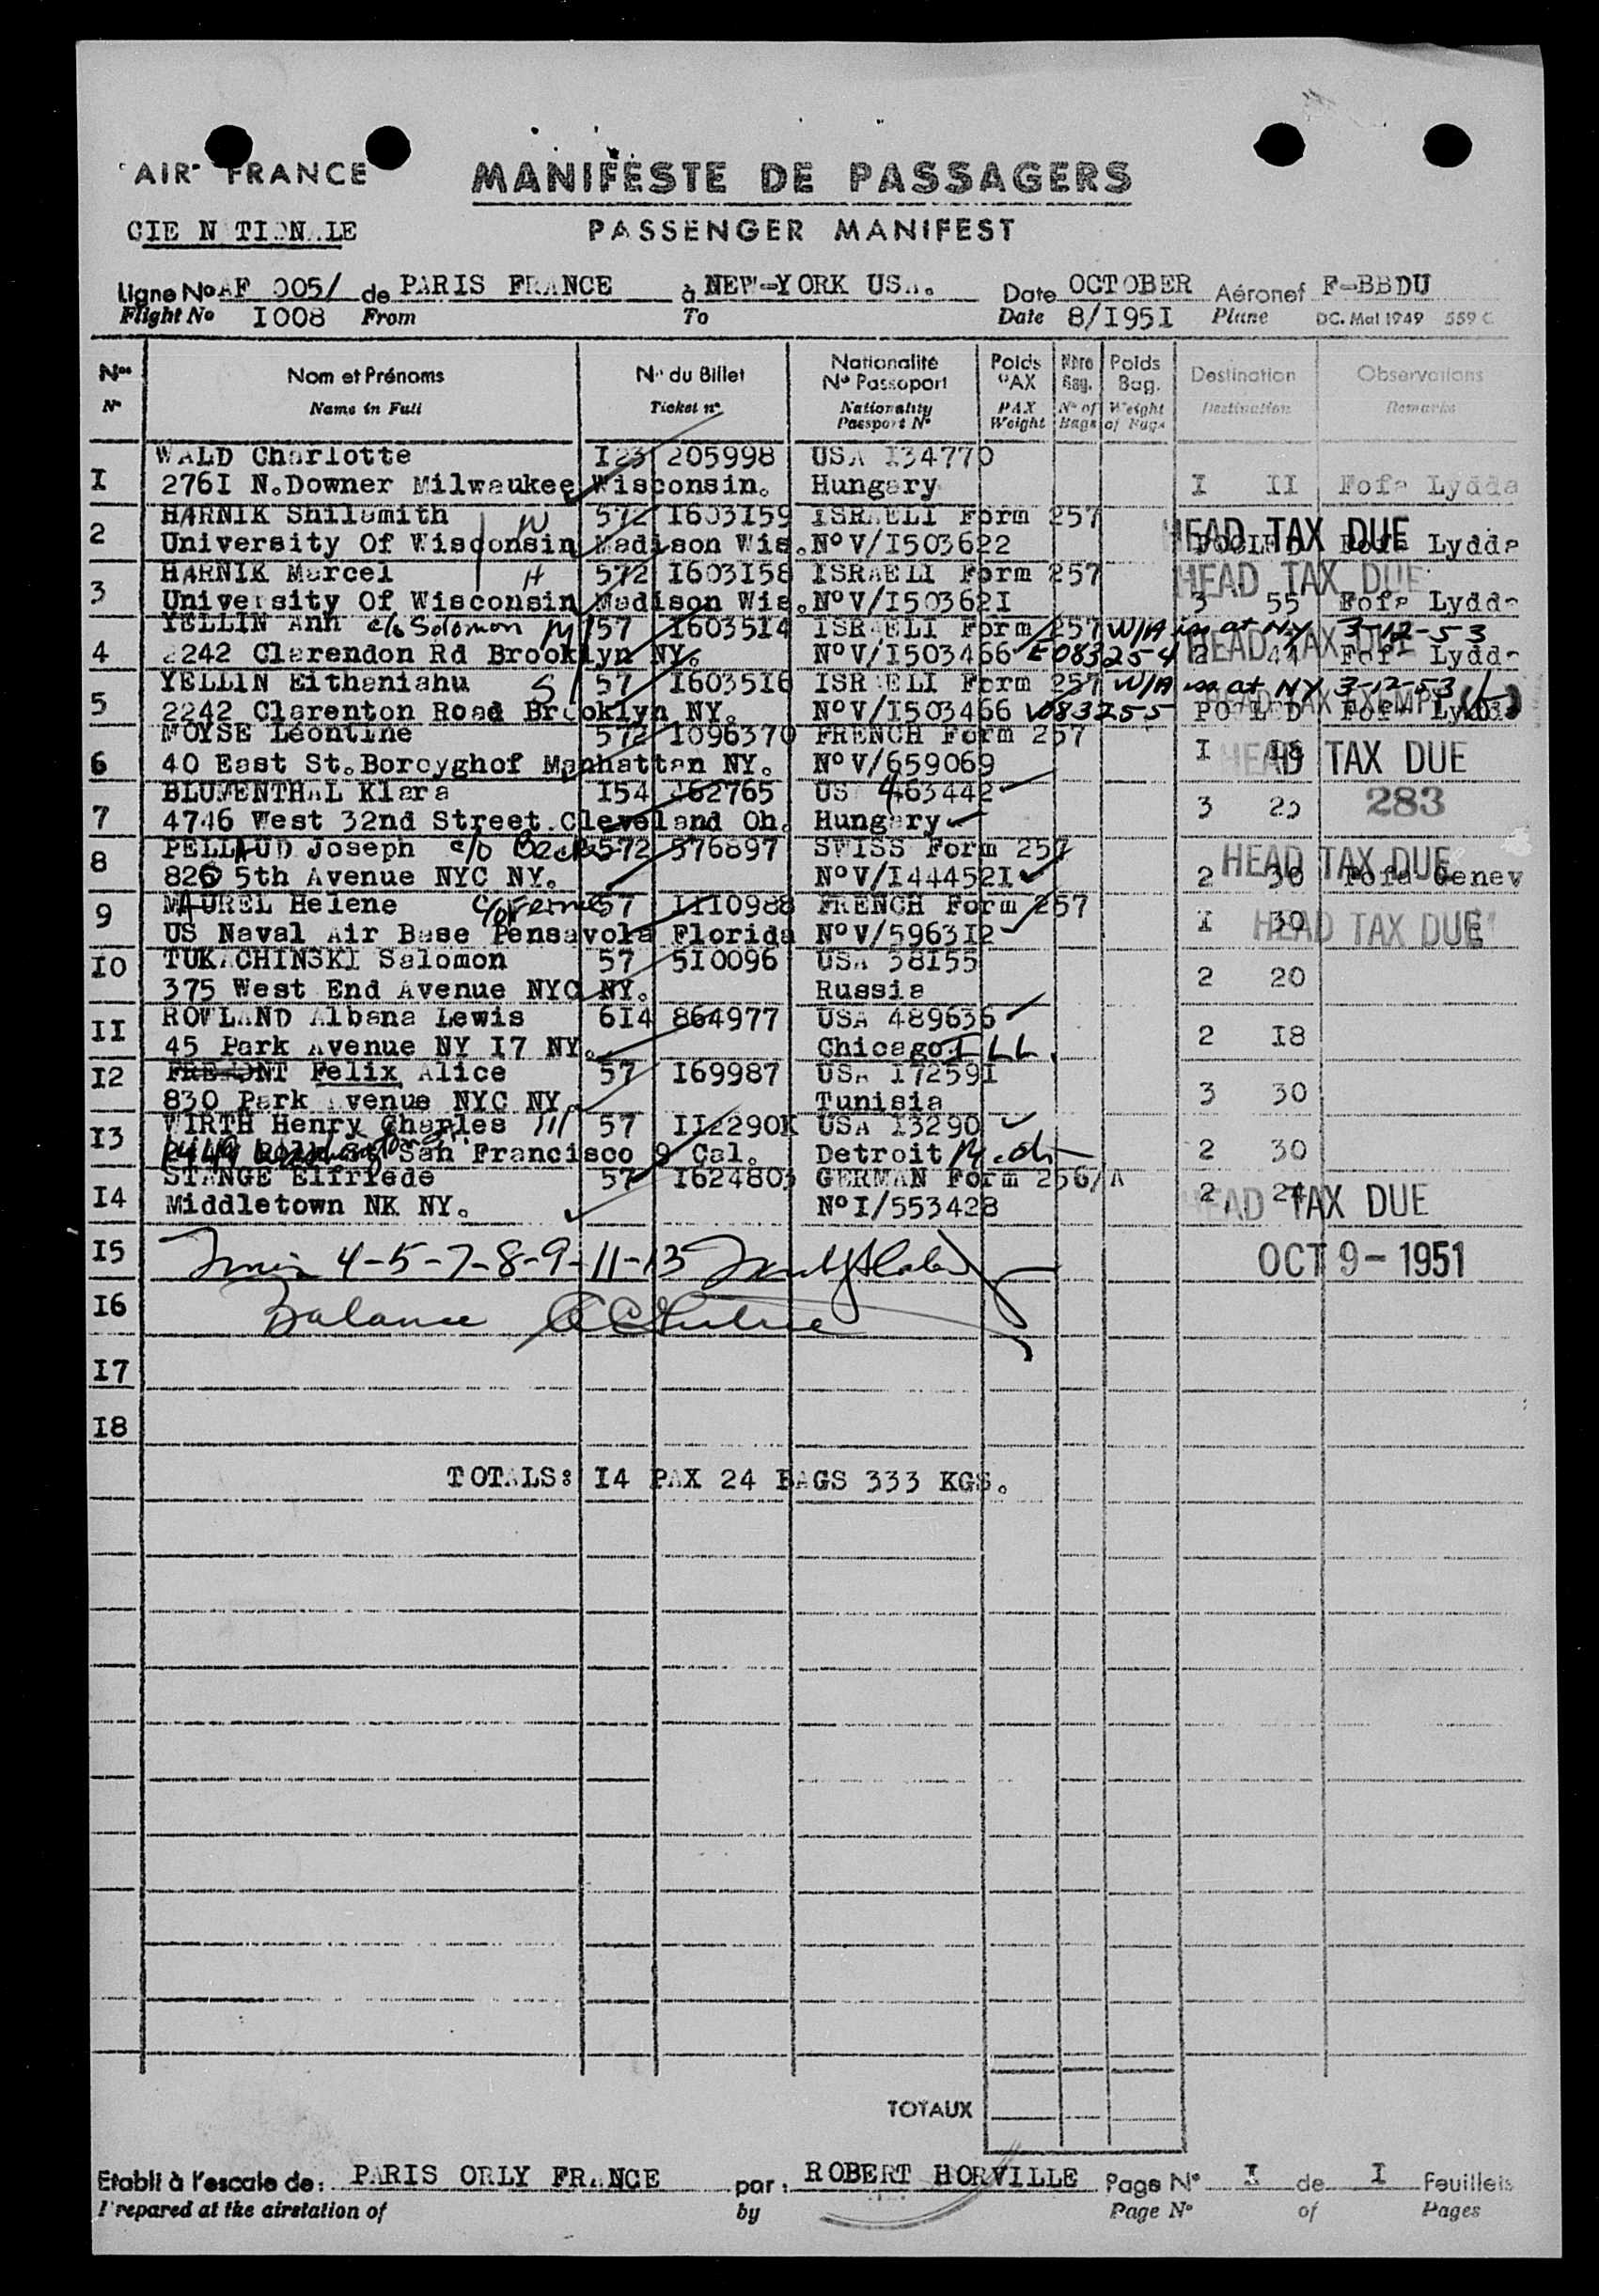 AIR FRANCE
MANIFESTE DE PASSAGERS
CIE N TION LE
PASSENGER MANIFEST
Ligne No AF 005/ de PARIS FRANCE à NEW-YORK USA. Date OCTOBER Aéronef F-BBDU
Flight No I008 From To Date 8/I95I Plane DC. Mai 1949 559 C
Nos Nom et Prénoms No du Billet Nationalité No Passeport Poids PAX Nbre Bag. Poids Bag. Destination Observations
No Name in Full Ticket no Nationality Passport No PAX Weight No of Bags Weight of Bags Destination Remarks
I WALD Charlotte I23 205998 USA I34770
276I N.Downer Milwaukee Wisconsin. Hungary I II Fofa Lydda
2 HARNIK Shilamith W 572 I603I59 ISRAELI Form 257
University Of Wisconsin Madison Wis. No V/I503622 HEAD TAX DUE Fofa Lydda
3 HARNIK Marcel H 572 I603I58 ISRAELI Form 257 HEAD TAX DUE
University Of Wisconsin Madison Wis. No V/I50362I 3 55 Fofa Lydda
4 YELLIN Ann c/o Solomon M 57 I603514 ISRAELI Form 257 W/A iss at NY 3-12-53
2242 Clarendon Rd Brooklyn NY. No V/I503466 E083254 HEAD TAX DUE 2 44 Fofa Lydda
5 YELLIN Eithaniahu S 57 I603516 ISRAELI Form 257 W/A iss at NY 3-12-53
2242 Clarenton Road Brooklyn NY. No V/I503466 V083255 POOLED HEAD TAX EXEMPT (6) Fofa Lydda
6 MOYSE Leontine 572 I096370 FRENCH Form 257
40 East St.Boroyghof Manhattan NY. No V/659069 I 18 HEAD TAX DUE
7 BLUMENTHAL Klara I54 462765 US 463442
4746 West 32nd Street.Cleveland Oh. Hungary 3 29 283
8 PELLAUD Joseph c/o 572 576897 SWISS Form 257 HEAD TAX DUE
820 5th Avenue NYC NY. No V/I44452I 2 30 Fofa Genev
9 MAUREL Helene c/o 57 III0988 FRENCH Form 257
US Naval Air Base Pensavola Florida No V/5963I2 I 30 HEAD TAX DUE
I0 TUKACHINSKI Salomon 57 5I0096 USA 38I55
375 West End Avenue NYC NY. Russia 2 20
II ROWLAND Albana Lewis 6I4 864977 USA 489636
45 Park Avenue NY I7 NY. Chicago ILL. 2 I8
I2 FREMONT Felix Alice 57 I69987 USA I7259I
830 Park Avenue NYC NY. Tunisia 3 30
I3 WIRTH Henry Charles III 57 II2290K USA I3290
San Francisco 9 Cal. Detroit Mich 2 30
I4 STANGE Elfriede 57 I624803 GERMAN Form 256/A
Middletown NK NY. No I/553428 2 24 HEAD TAX DUE
I5 4-5-7-8-9-11-13 OCT 9 - 1951
I6 Balance
I7
I8
TOTALS: I4 PAX 24 BAGS 333 KGS.
TOTAUX
Etabli à l'escale de: PARIS ORLY FRANCE par: ROBERT HORVILLE Page No I de I Feuillets
Prepared at the airstation of by Page No of Pages